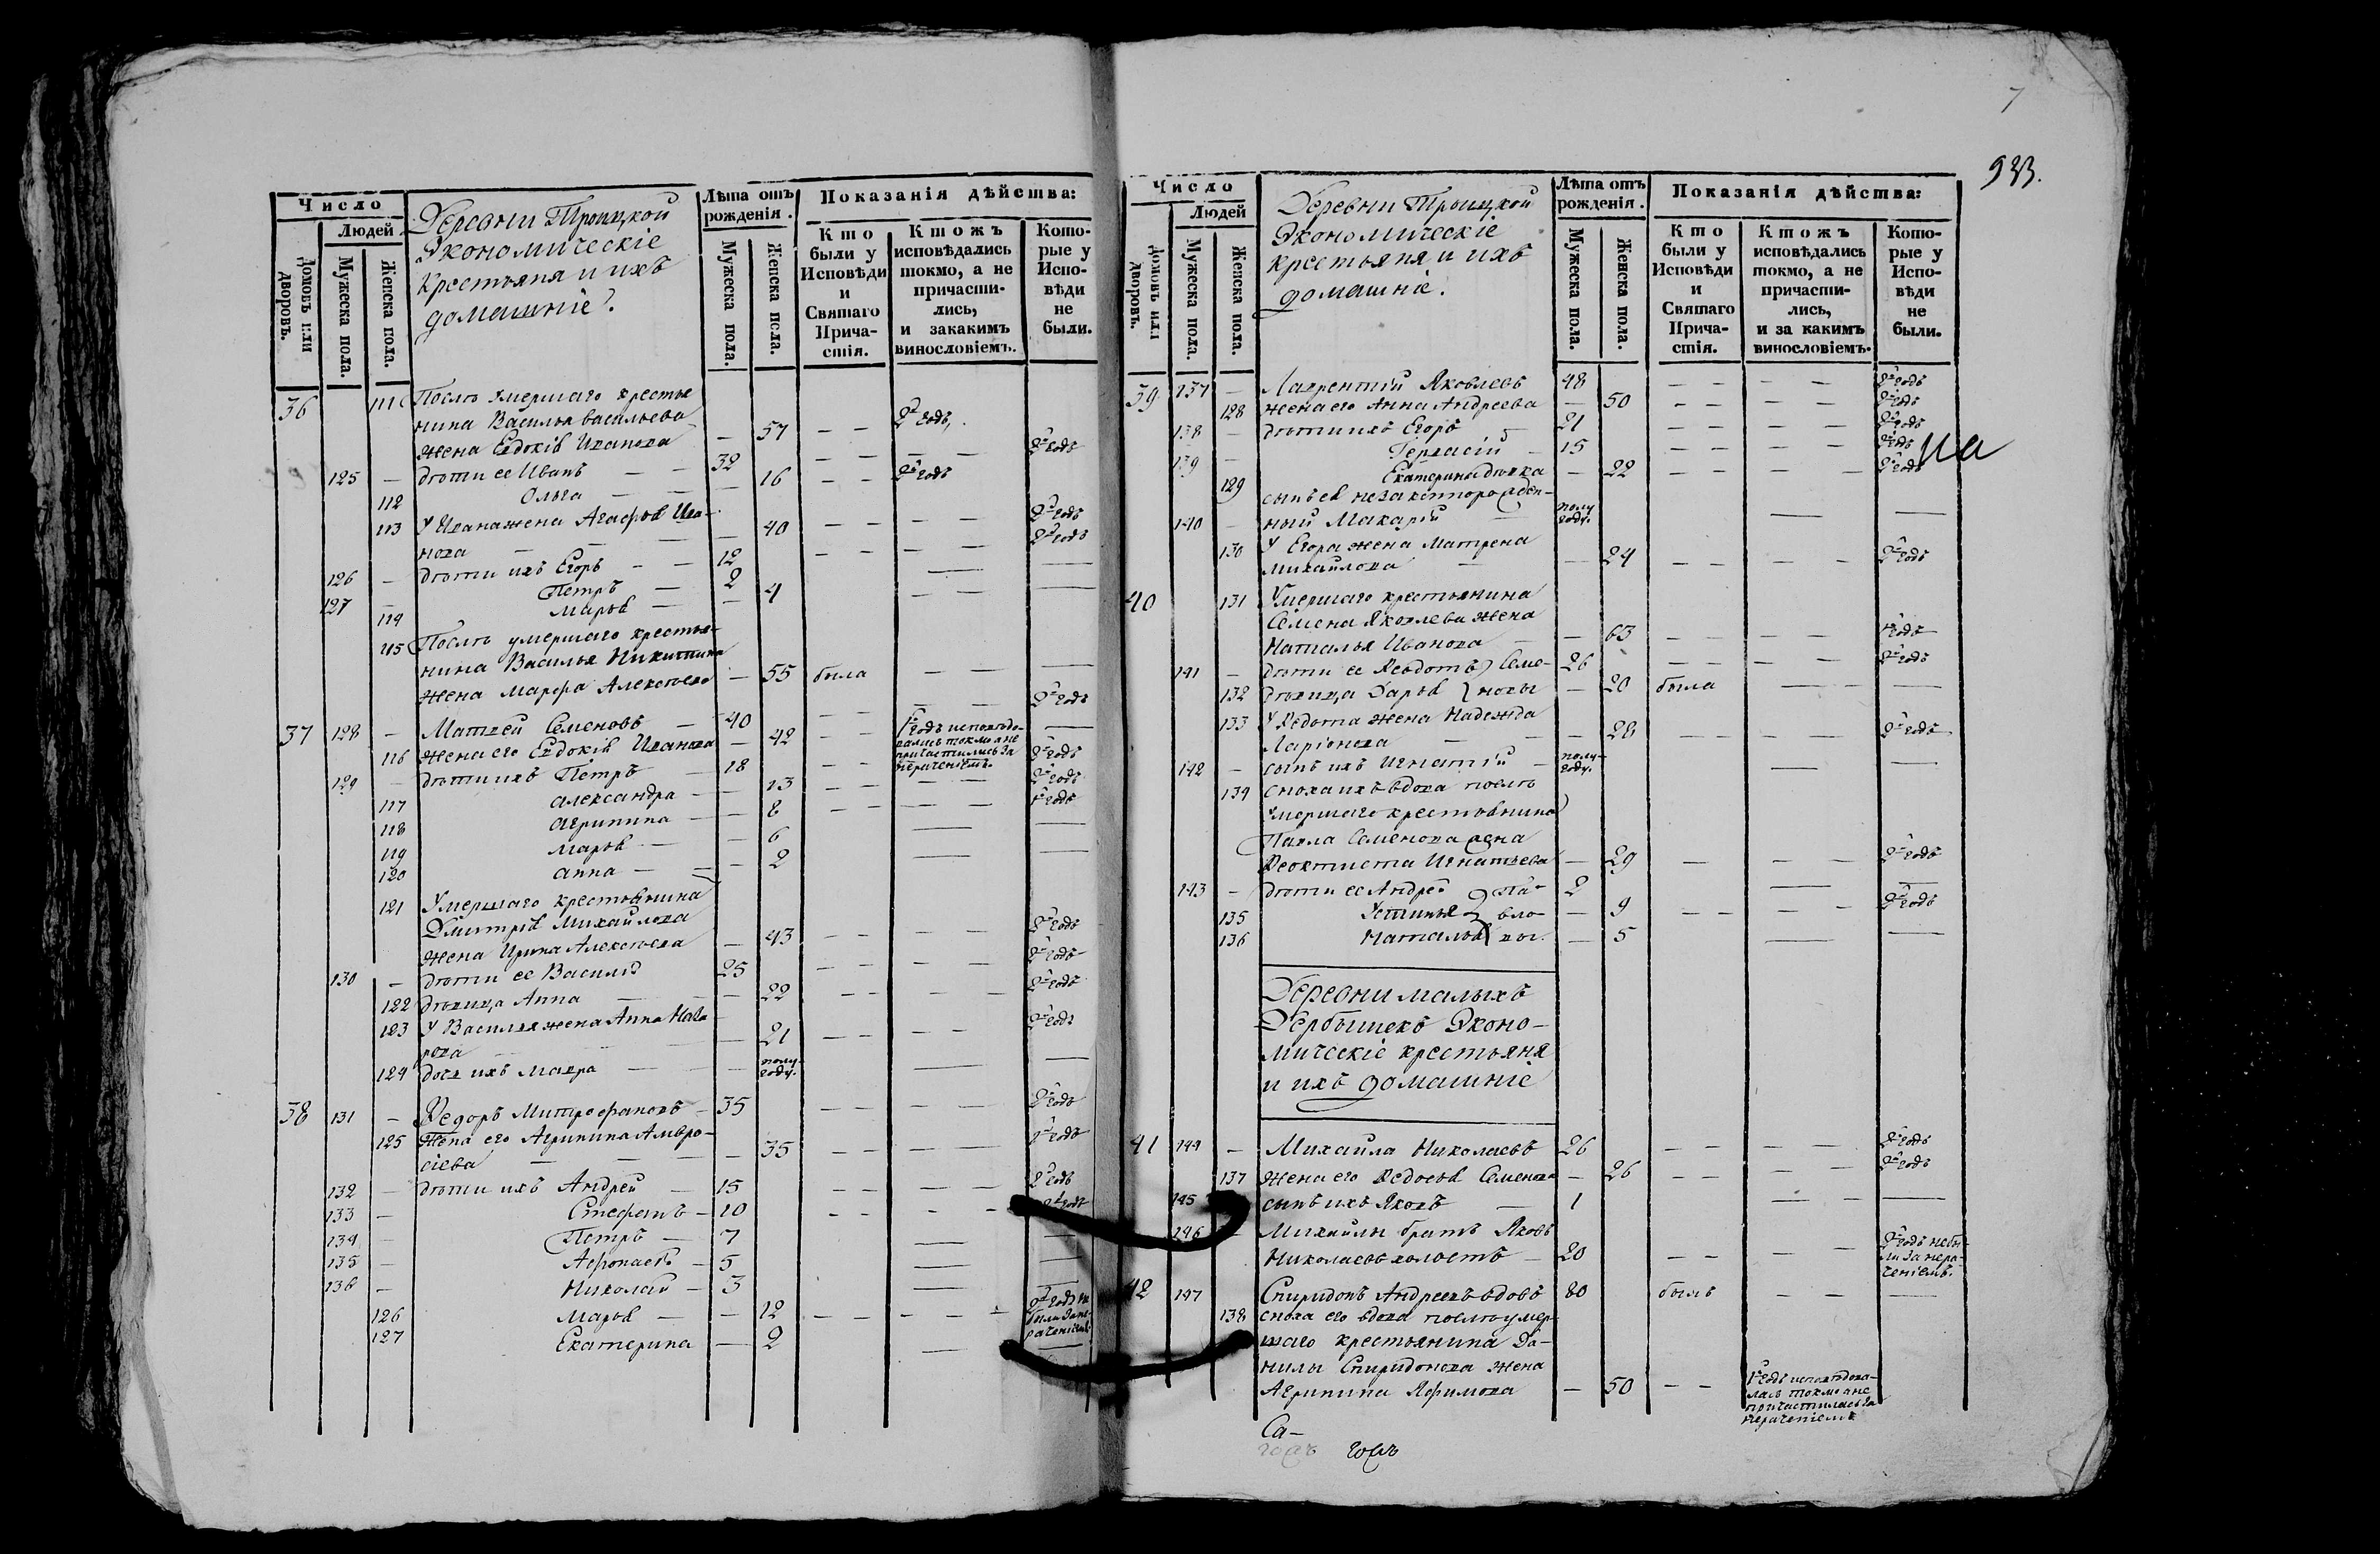 7
933.
Число
Людей
Домовъ или дворовъ.
Мужеска пола.
Женска пола.
Деревни Троицкой
Экономическіе
крестьяня и ихъ
домашніе.
Лѣта отъ рожденія.
Мужеска пола.
Женска пола.
Показанія дѣйства:
Кто были у Исповѣди и Святаго Причастія.
Ктожъ исповѣдались токмо, а не причастились, и закакимъ винословіемъ.
Которые у Исповѣди не были.
36 111 Послѣ умершаго крестья
нина Василья васильева
жена Евдокія Иванова — 57 — — 2й годъ
125 — дѣти ее Иванъ — — 32 — — — — 2й годъ
112 Ольга — — 16 — — 2й годъ
113 У Ивана жена Агафья Ива-
нова — — — 40 — — — — 2й годъ
126 — дѣти ихъ Егоръ — — 12 — — — — 2й годъ
127 — Петръ — 2 — —
114 Марья — — 4 — — —
115 Послѣ умершаго крестья-
нина Василья Никитина
жена Марфа Алексѣева — 55 была — —
37 128 — Матвей Семеновъ — 40 — — — — 2й годъ
116 жена его Евдокія Иванова — 42 — — 1й годъ исповѣдо-
вались токмо а не
причастились за
нераченіемъ. —
129 — дѣти ихъ Петръ — 18 — — — — 2й годъ
117 александра — — 13 — — — — 2й годъ
118 агрипина — — 8 — — — — 1й годъ
119 марья — — 6 — —
120 анна — — 2 — —
121 Умершаго крестьянина
Дмитрія Михайлова
жена Ирина Алексѣева — 43 — — — — 2й годъ
130 — дѣти ее Василій 25 — — — — 2й годъ
122 дѣвица Анна — — 22 — — — — 2й годъ
123 У Василья жена Анна Наза
рова — — — 21 — — — — 2й годъ
124 дочь ихъ Мавра — — полу-
году. — —
38 131 — Федоръ Митрофановъ — 35 — — — — 2й годъ
125 жена его Агрипина Амвро-
сіева — — — — 35 — — — — 2й годъ
132 — дѣти ихъ Андрей — 15 — — — — 2й годъ
133 — Стефанъ — 10 — — — — годъ
134 — Петръ — 7 — —
135 — Афонасей — 5 — —
136 — Николай — 3 — —
126 Марья — — 12 — — — — 2й годъ не
были за не-
раченіемъ
127 Екатерина — 2 — —
Число
Людей
Домовъ или дворовъ.
Мужеска пола.
Женска пола.
Деревни Троицкой
Экономическіе
крестьяня и ихъ
домашніе.
Лѣта отъ рожденія.
Мужеска пола.
Женска пола.
Показанія дѣйства:
Кто были у Исповѣди и Святаго Причастія.
Ктожъ исповѣдались токмо, а не причастились, и за какимъ винословіемъ.
Которые у Исповѣди не были.
39 137 — Лаврентій Яковлевъ 48 — — — — 2й годъ
128 жена его Анна Андреева — 50 — — — — 2й годъ
138 — дѣти ихъ Егоръ — 21 — — — — 2й годъ
139 — Гервасій — 15 — — — — 2й годъ
129 Екатерина дѣвка — 22 — — — — 2й годъ
на
сынъ ея незаконнорожден-
140 — ный Макарій — полу
году. — —
130 У Егора жена Матрена
Михайлова — — 24 — — — — 2й годъ
40 131 Умершаго крестьянина
Семена Яковлева жена
Наталья Иванова — — 63 — — — — годъ
141 — дѣти ее Ѳедотъ Семе- 26 — — — — 2й годъ
132 дѣвица Дарья новы — 20 была — —
133 У Ѳедота жена Надежда
Ларіонова — — — 28 — — — — 2й годъ
142 — сынъ ихъ Игнатій — полу-
году. — —
134 сноха ихъ вдова послѣ
умершаго крестьянина
Павла Семенова жена
Ѳеоктиста Игнатьева — 29 — — — 2й годъ
143 — дѣти ее Андрей Па- 2 — —
135 Устинья вло- — 9 — — — — 2й годъ
136 Наталья вы. — 5 — —
Деревни малыхъ
Дербышекъ Эконо-
мическіе крестьяня
и ихъ домашніе
41 144 — Михайла Николаевъ 26 — — — — 2й годъ
137 жена его Ѳедосья Семенова — 26 — — — — 2й годъ
145 сынъ ихъ Яковъ — 1 — — —
146 — Михайлы братъ Яковъ
Николаевъ холостъ — 20 — — — — 2й годъ небы-
ли за нера-
ченіемъ.
42 147 Спиридонъ Андреевъ вдовъ 80 былъ — — —
138 сноха его вдова послѣ умер
шаго крестьянина Да-
нилы Спиридонова жена
Агрипина Яфимова — 50 — — 1й годъ исповѣдова-
лась токмо а не
причастилась за
нераченіемъ
Са-